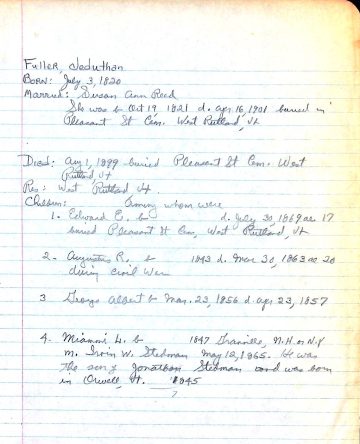 Fuller, Jeduthan
Born: July 3, 1820
Married: Susan Ann Reed
She was b Oct 19, 1821 d. Apr 16, 1901 buried in
Pleasant St Cem. West Rutland, Vt
Died: Aug 1, 1899 buried Pleasant St Cem. West
Rutland Vt
Res: West Rutland Vt.
Children: Among whom were
1. Edward E. b d. July 30, 1869 ae 17
buried Pleasant St Cem, West Rutland, Vt
2. Augustus R. b 1843 d. Mar 30, 1863 ae 20
during Civil War
3 George Albert b Mar. 23, 1856 d Apr 23, 1857
4. L. b 1847 Granville, N.H. or N.Y
m. Irvin W. Stedman May 12, 1865. He was
the son of Jonathan Stedman and was born
in Orwell, Vt. 1845
?